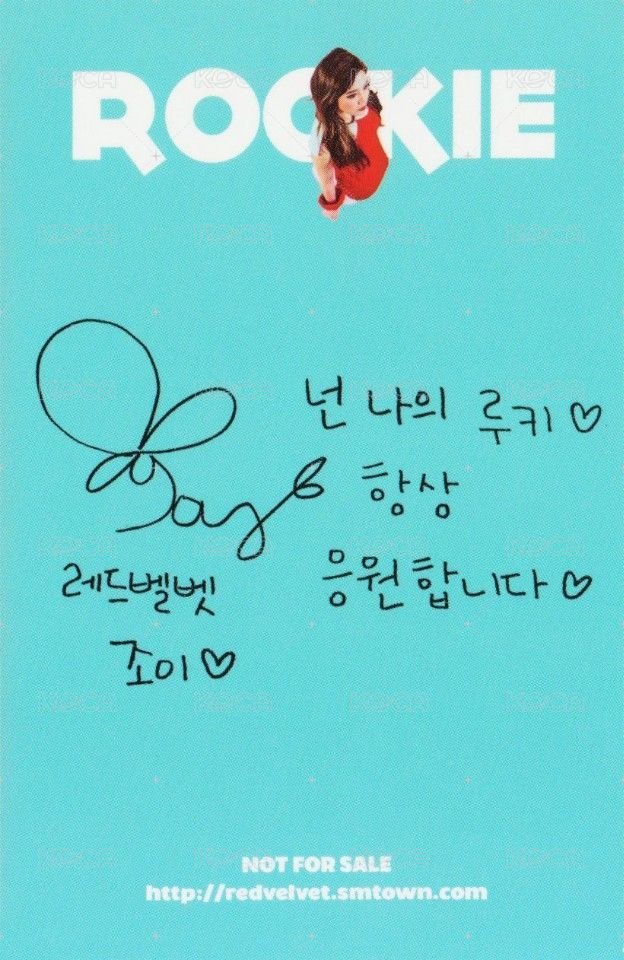 ROOKIE
넌 나의 루키♡
항상
응원합니다♡
Joy
레드벨벳
조이♡
NOT FOR SALE
http://redvelvet.smtown.com
KOCA